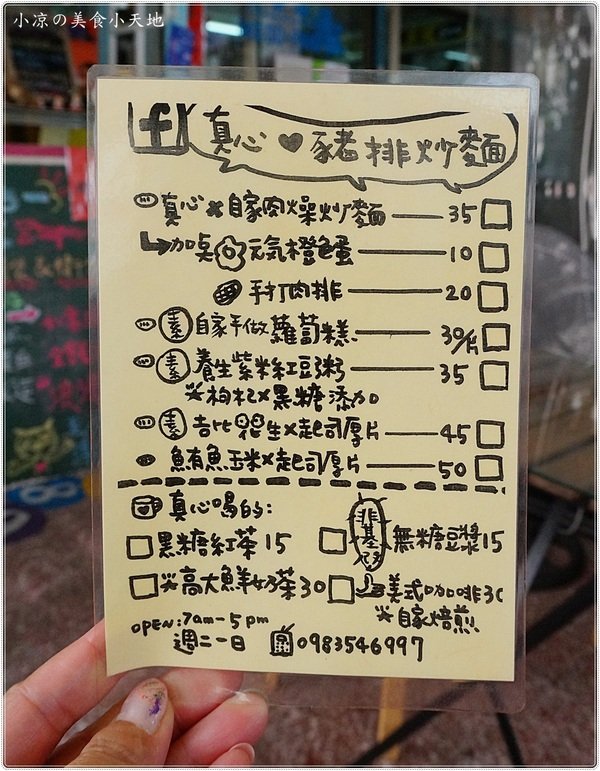 小凉の美食小天地
f 真心♥豬排炒麵
真心×自家肉燥炒麵 35
加点 元気橙色蛋 10
手打肉排 20
素 自家手做蘿蔔糕 30/片
素 養生紫粉紅豆粥 35
※枸杞×黑糖添加
素 吉比花生×起司厚片 45
鮪魚玉米×起司厚片 50
真心喝的:
黑糖紅茶 15
非基改 無糖豆漿 15
※高大鮮奶茶 30
美式咖啡 30
※自家焙煎
OPEN:7am-5pm
週二-日 0983546997